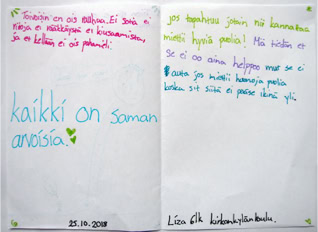 Toivoisin en ois rauhaa. Ei sotia ei
riitoja ei rääkkäystä ei kiusaamista,
ja et kellään ei ois pahamieli.
kaikki on saman
arvoisia.
25.10.2018
jos tapahtuu jotain nii kannattaa
miettii hyviä puolia! Mä tiedän et
se ei oo aina helppoo mut se ei
auta jos miettii huonoja puolia
koska sit siitä ei pääse ikinä yli.
Liza 6lk kirkonkylänkoulu.